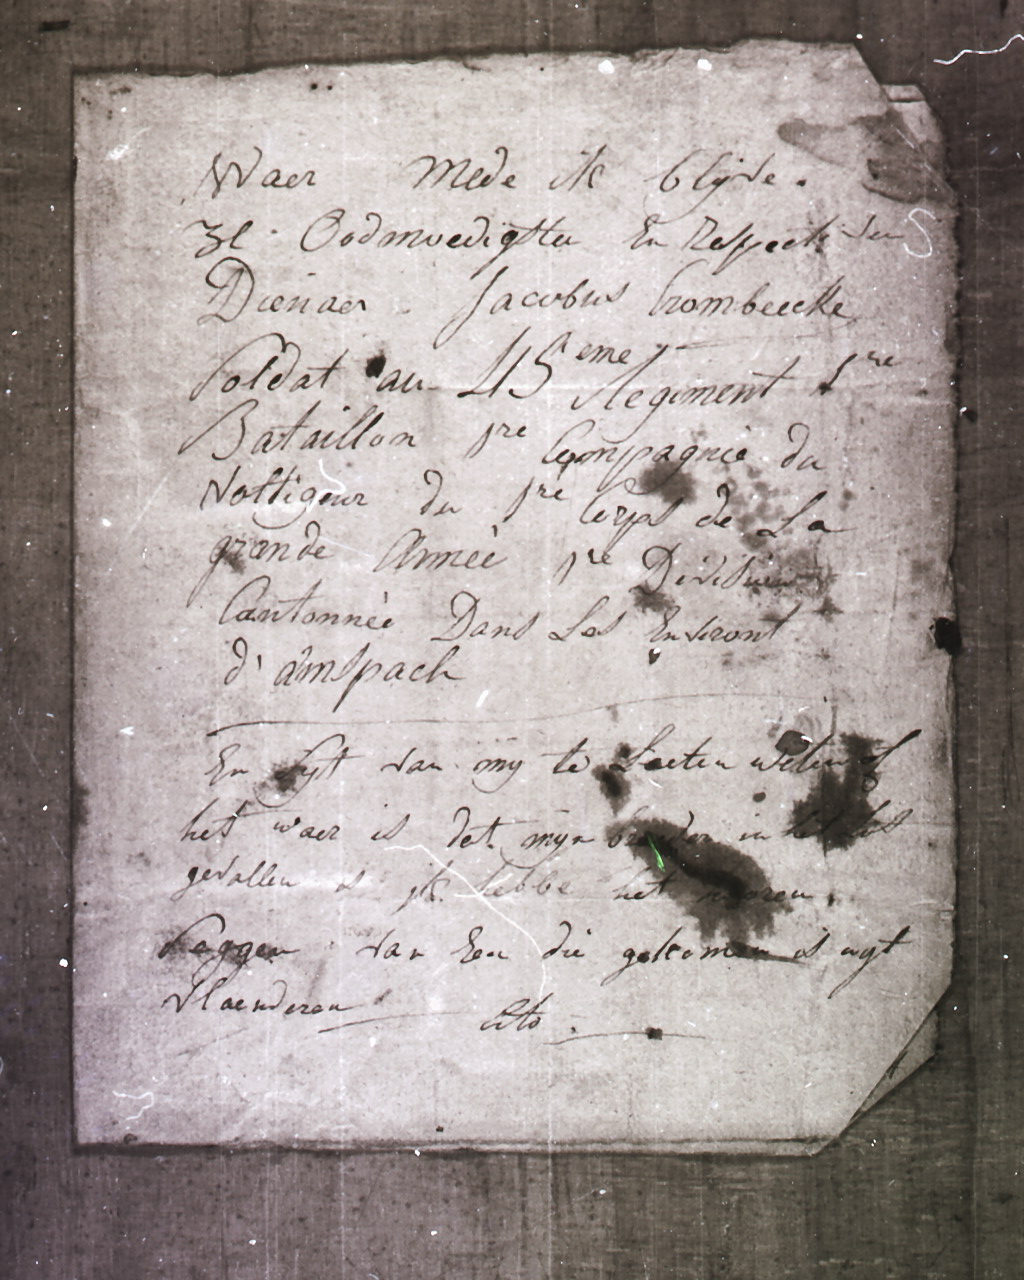 Waer mede ik blyve.
ul. Oodmoedigsten En Respectiven
Dienaer. Jacobus Crombeecke
Soldat au 45eme Regiment 1re
Bataillon 1re Compagnie du
Voltigeur du 1re Corps de La
grande Armeé 1re Division
Cantonneé Dans Les Environt
d'anspach
En Syt van my te Laeten weten of
het waer is dat myn in het
gevallen is ik hebbe het
Seggen van Een die gekomen is uyt
Vlaenderen Cito.